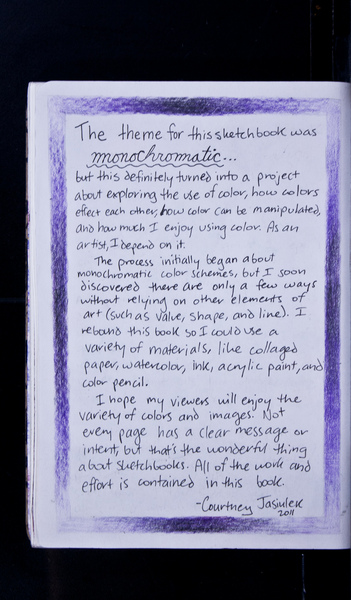 The theme for this sketchbook was
monochromatic...
but this definitely turned into a project
about exploring the use of color, how colors
effect each other, how color can be manipulated,
and how much I enjoy using color. As an
artist, I depend on it.
The process initially began about
monochromatic color schemes, but I soon
discovered there are only a few ways
without relying on other elements of
art (such as value, shape, and line). I
rebound this book so I could use a
variety of materials, like collaged
paper, watercolor, ink, acrylic paint, and
color pencil.
I hope my viewers will enjoy the
variety of colors and images. Not
every page has a clear message or
intent, but that's the wonderful thing
about sketchbooks. All of the work and
effort is contained in this book.
-Courtney Jasiulek
2011